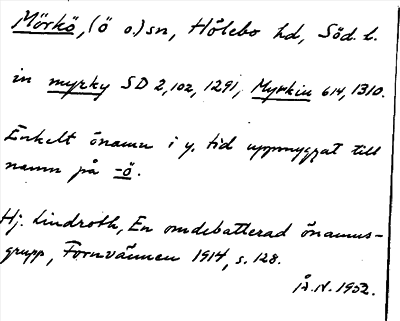 Mörkö, (ö o.) sn, Hölebo hd, Söd. l.
in myrky SD 2,102, 1291, Myrkiu 614, 1310.
Enkelt önamn i y. tid uppnyggat till
namn på -ö.
Hj. Lindroth, En omdebatterad önamns-
grupp, Fornvännen 1914, s. 128.
Å.N. 1952.